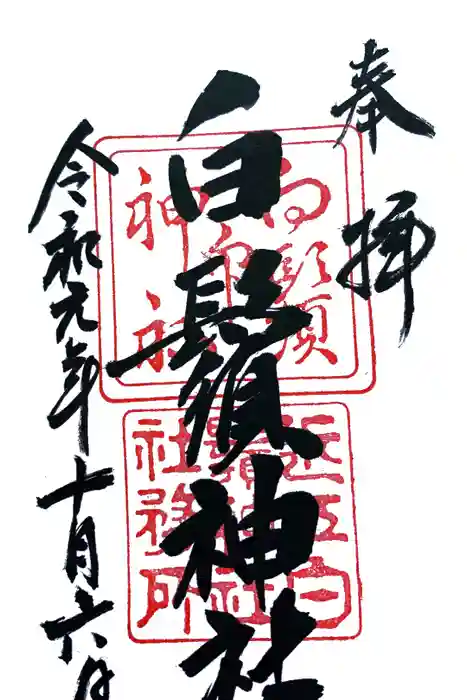 奉拝
白鬚神社
令和元年十月六日
白鬚神社
近江白
鬚神社
社務所